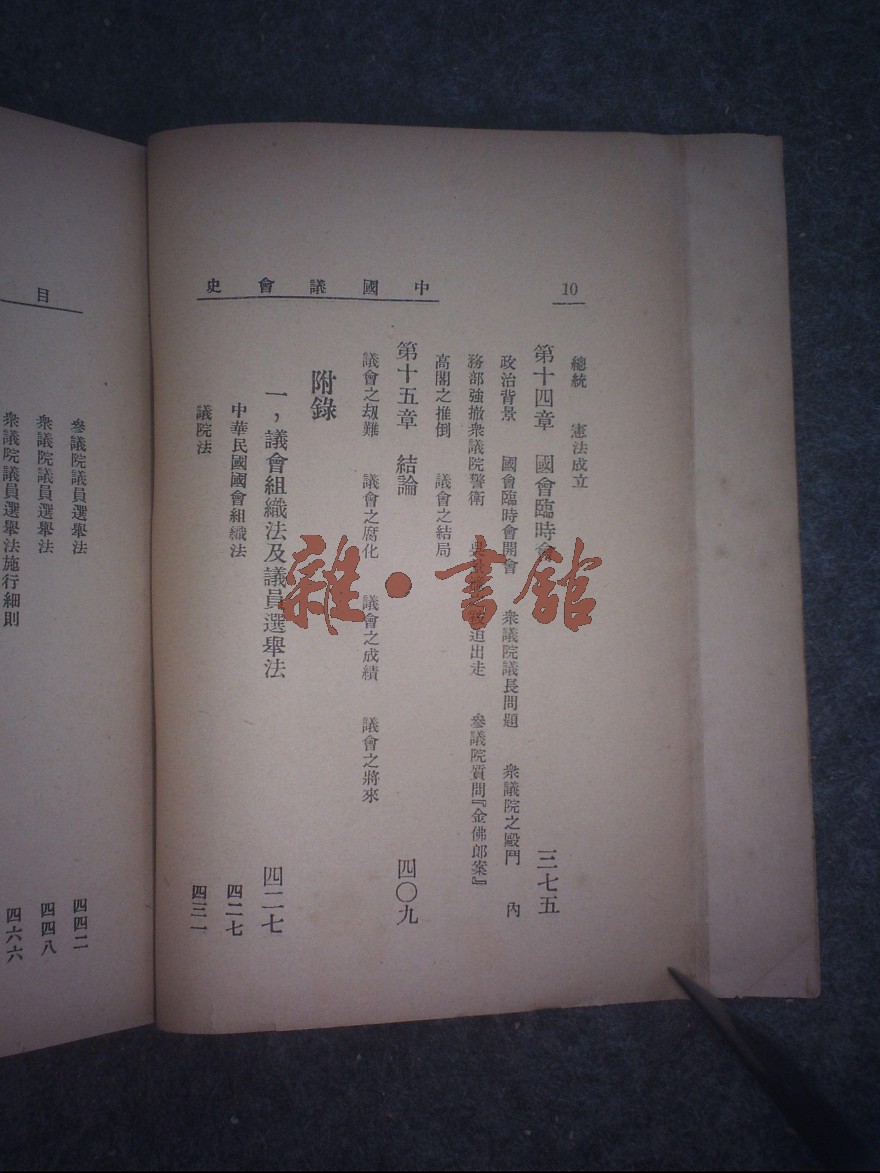 10
中國議會史
總統　憲法成立
第十四章　國會臨時會　三七五
政治背景　國會臨時會開會　衆議院議長問題　衆議院之毆鬥　內
務部強撤衆議院警衛　迫出走　參議院質問『金佛郎案』
高閣之推倒　議會之結局
第十五章　結論　四〇九
議會之劫難　議會之腐化　議會之成績　議會之將來
附錄
一，議會組織法及議員選舉法　四二七
中華民國國會組織法　四二七
議院法　四三一
目
參議院議員選舉法　四四二
衆議院議員選舉法　四四八
衆議院議員選舉法施行細則　四六六
雜·書館